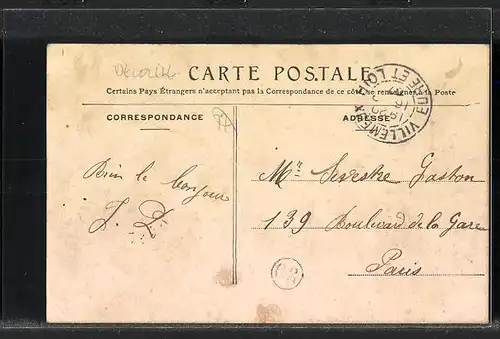 CARTE POSTALE
Certains Pays Étrangers n'acceptant pas la Correspondance de ce côté, se renseigner à la Poste
CORRESPONDANCE
ADRESSE
VILLEMEUX
EURE ET LOIR
Bien le bonjour
J. D.
Mr Sevestre Gaston
139 Boulevard de la Gare
Paris